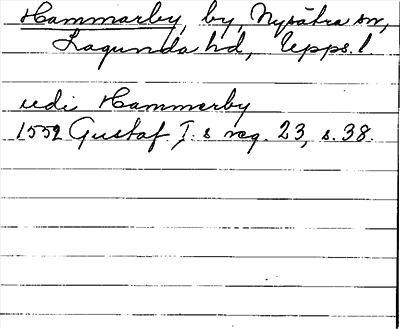 Hammarby, by, Nysätra sn,
Lagunda hd, Upps. l.
udi Hammerby
1552 Gustaf I:s reg. 23, s. 38.